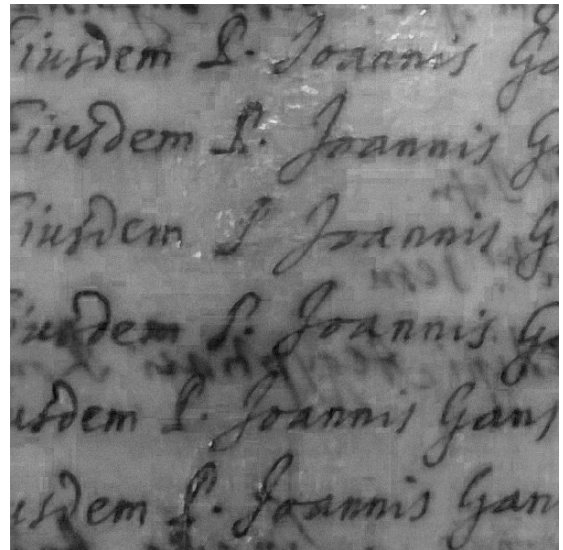 Eiusdem P. Joannis Ga
Eiusdem P. Joannis Ga
Eiusdem P Joannis G
Eiusdem P. Joannis Ga
usdem P. Joannis Gans
usdem P. Joannis Gan